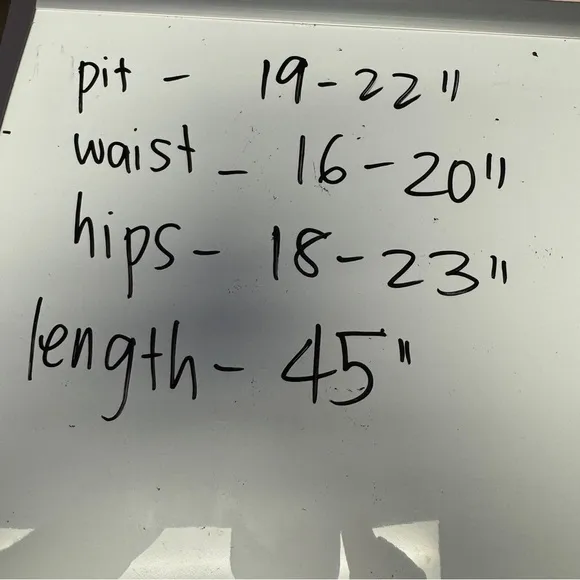 pit - 19-22"
waist - 16-20"
hips - 18-23"
length - 45"